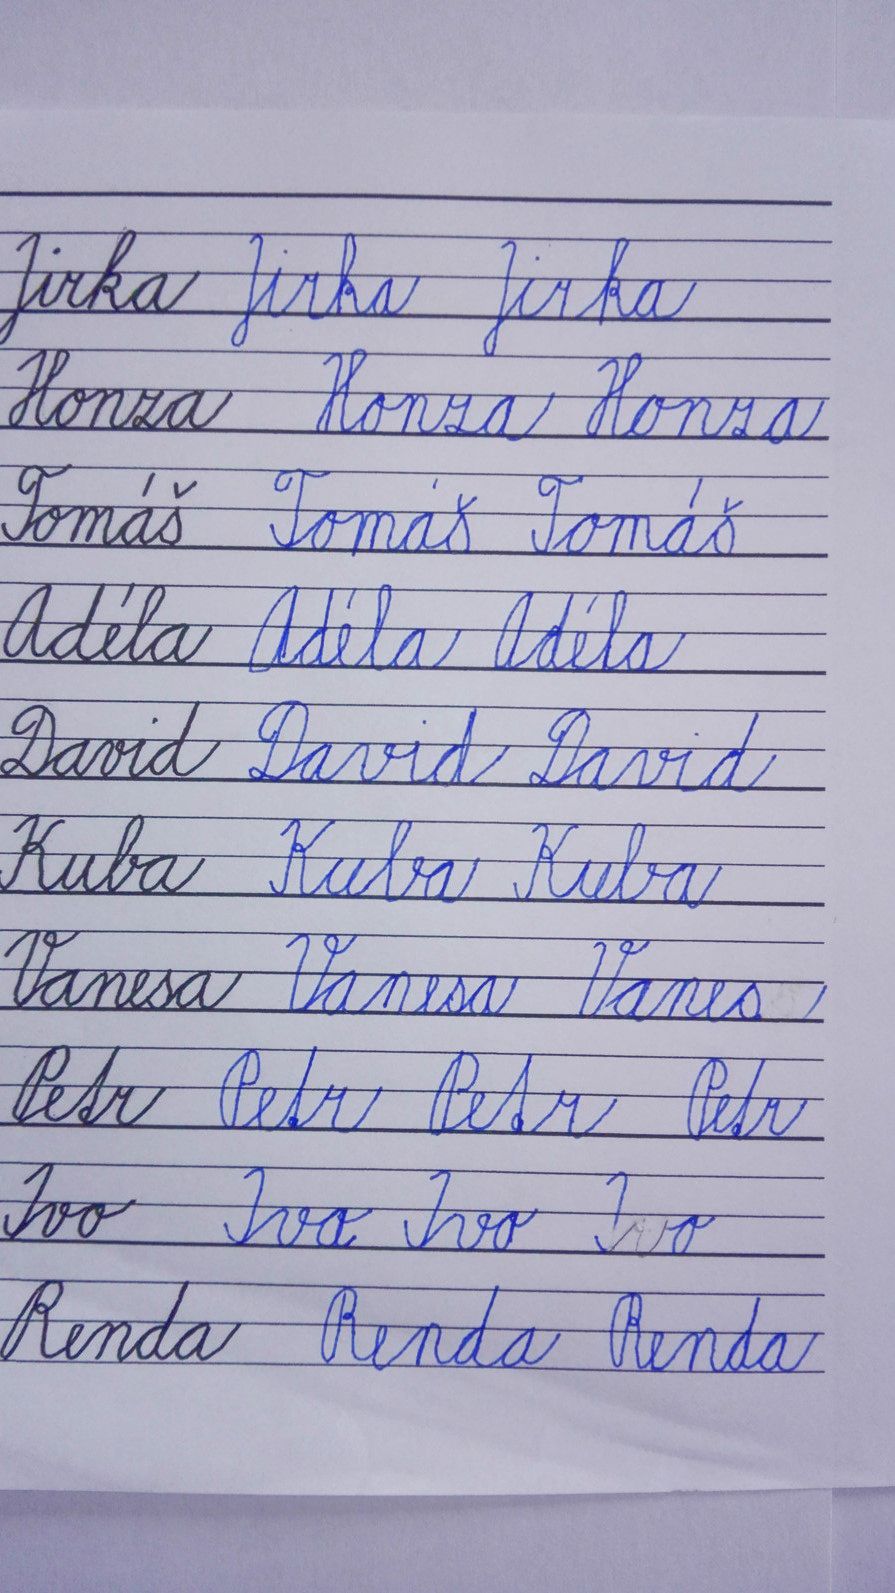 Jirka Jirka Jirka
Honza Honza Honza
Tomáš Tomáš Tomáš
Adéla Adéla Adéla
David David David
Kuba Kuba Kuba
Vanesa Vanesa Vanes
Petr Petr Petr Petr
Ivo Ivo Ivo Ivo
Renda Renda Renda